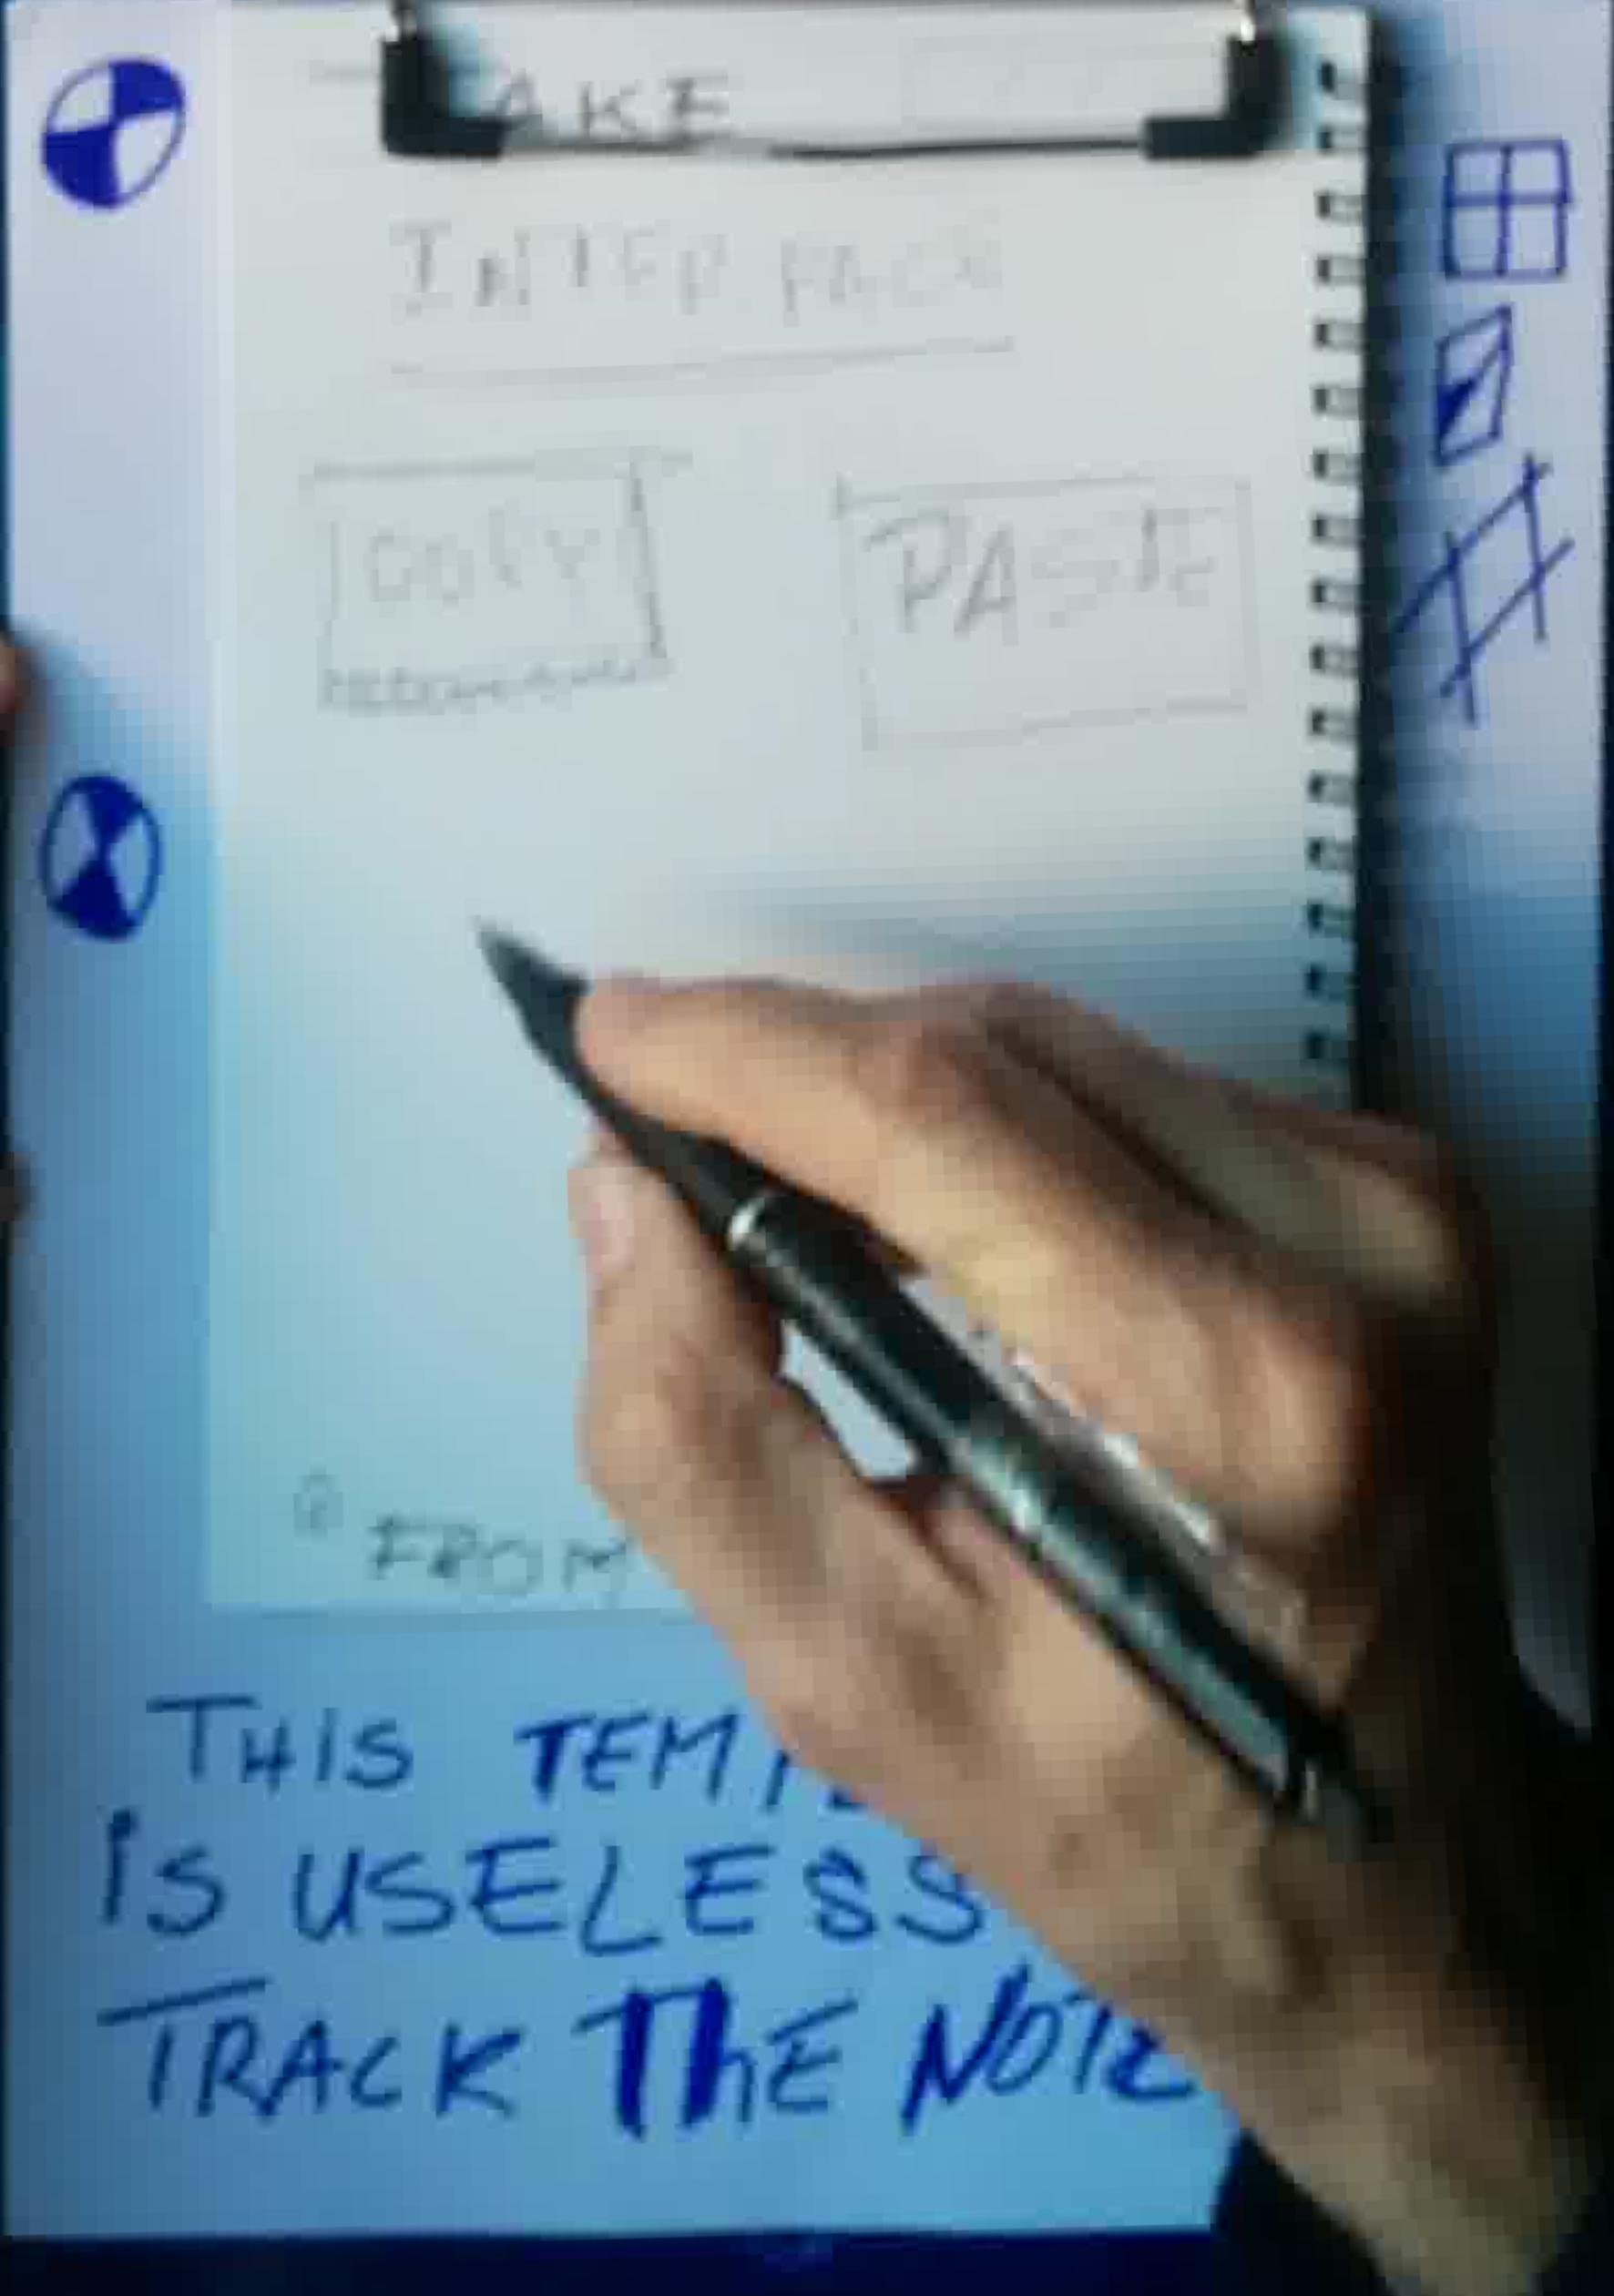 AKE
INTERFACE
COPY PASTE
FROM
THIS
iS USELESS
TRACK ThE NOTE